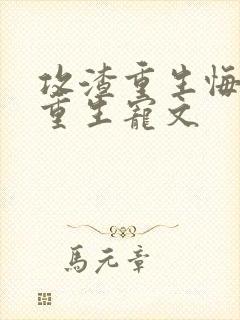 攻渣重生悔
重生寵文
馬元章